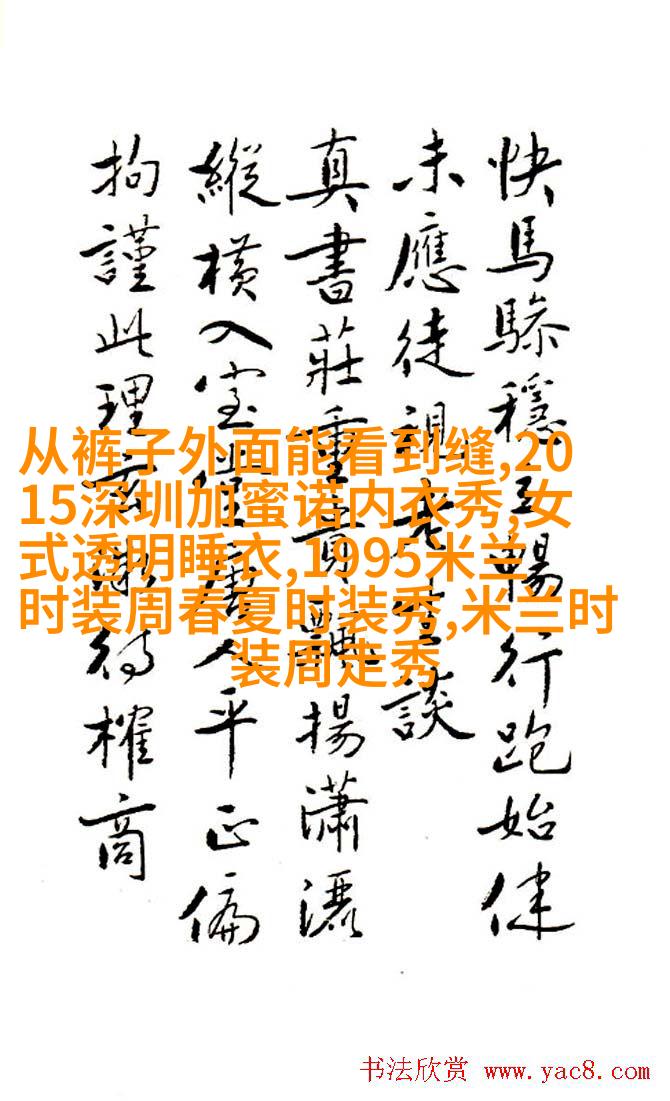 快馬驂穩暢行跑始健
未應徒視老生談
真書莊重貴飄揚瀟灑
縱橫入室人平正偏
拘謹此理待榷商
从裤子外面能看到缝,20
15深圳加蜜诺内衣秀,女
式透明睡衣,1995米兰
时装周春夏时装秀,米兰时
装周走秀
书法欣赏 www.yac8.com